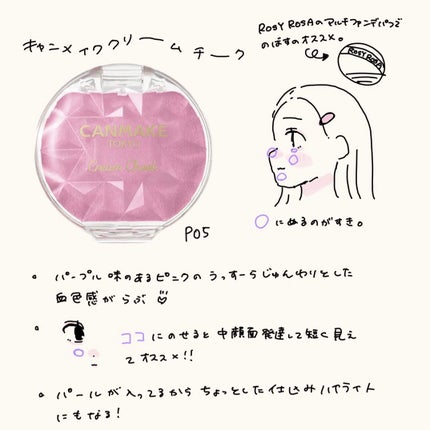 キャンメイククリームチーク
ROSY ROSAのマルチファンデパフで
のばすのオススメ。
ROSY ROSA
CANMAKE
TOKYO
Cream Cheek
P05
○にぬるのがすき。
・ パープル味のあるピンクのうっすーらじゅんわりとした
血色感がらぶ
・ ココにのせると中顔面発達して短く見え
てオススメ!!
・ パールが入ってるからちょっとした仕込みハイライト
にもなる!